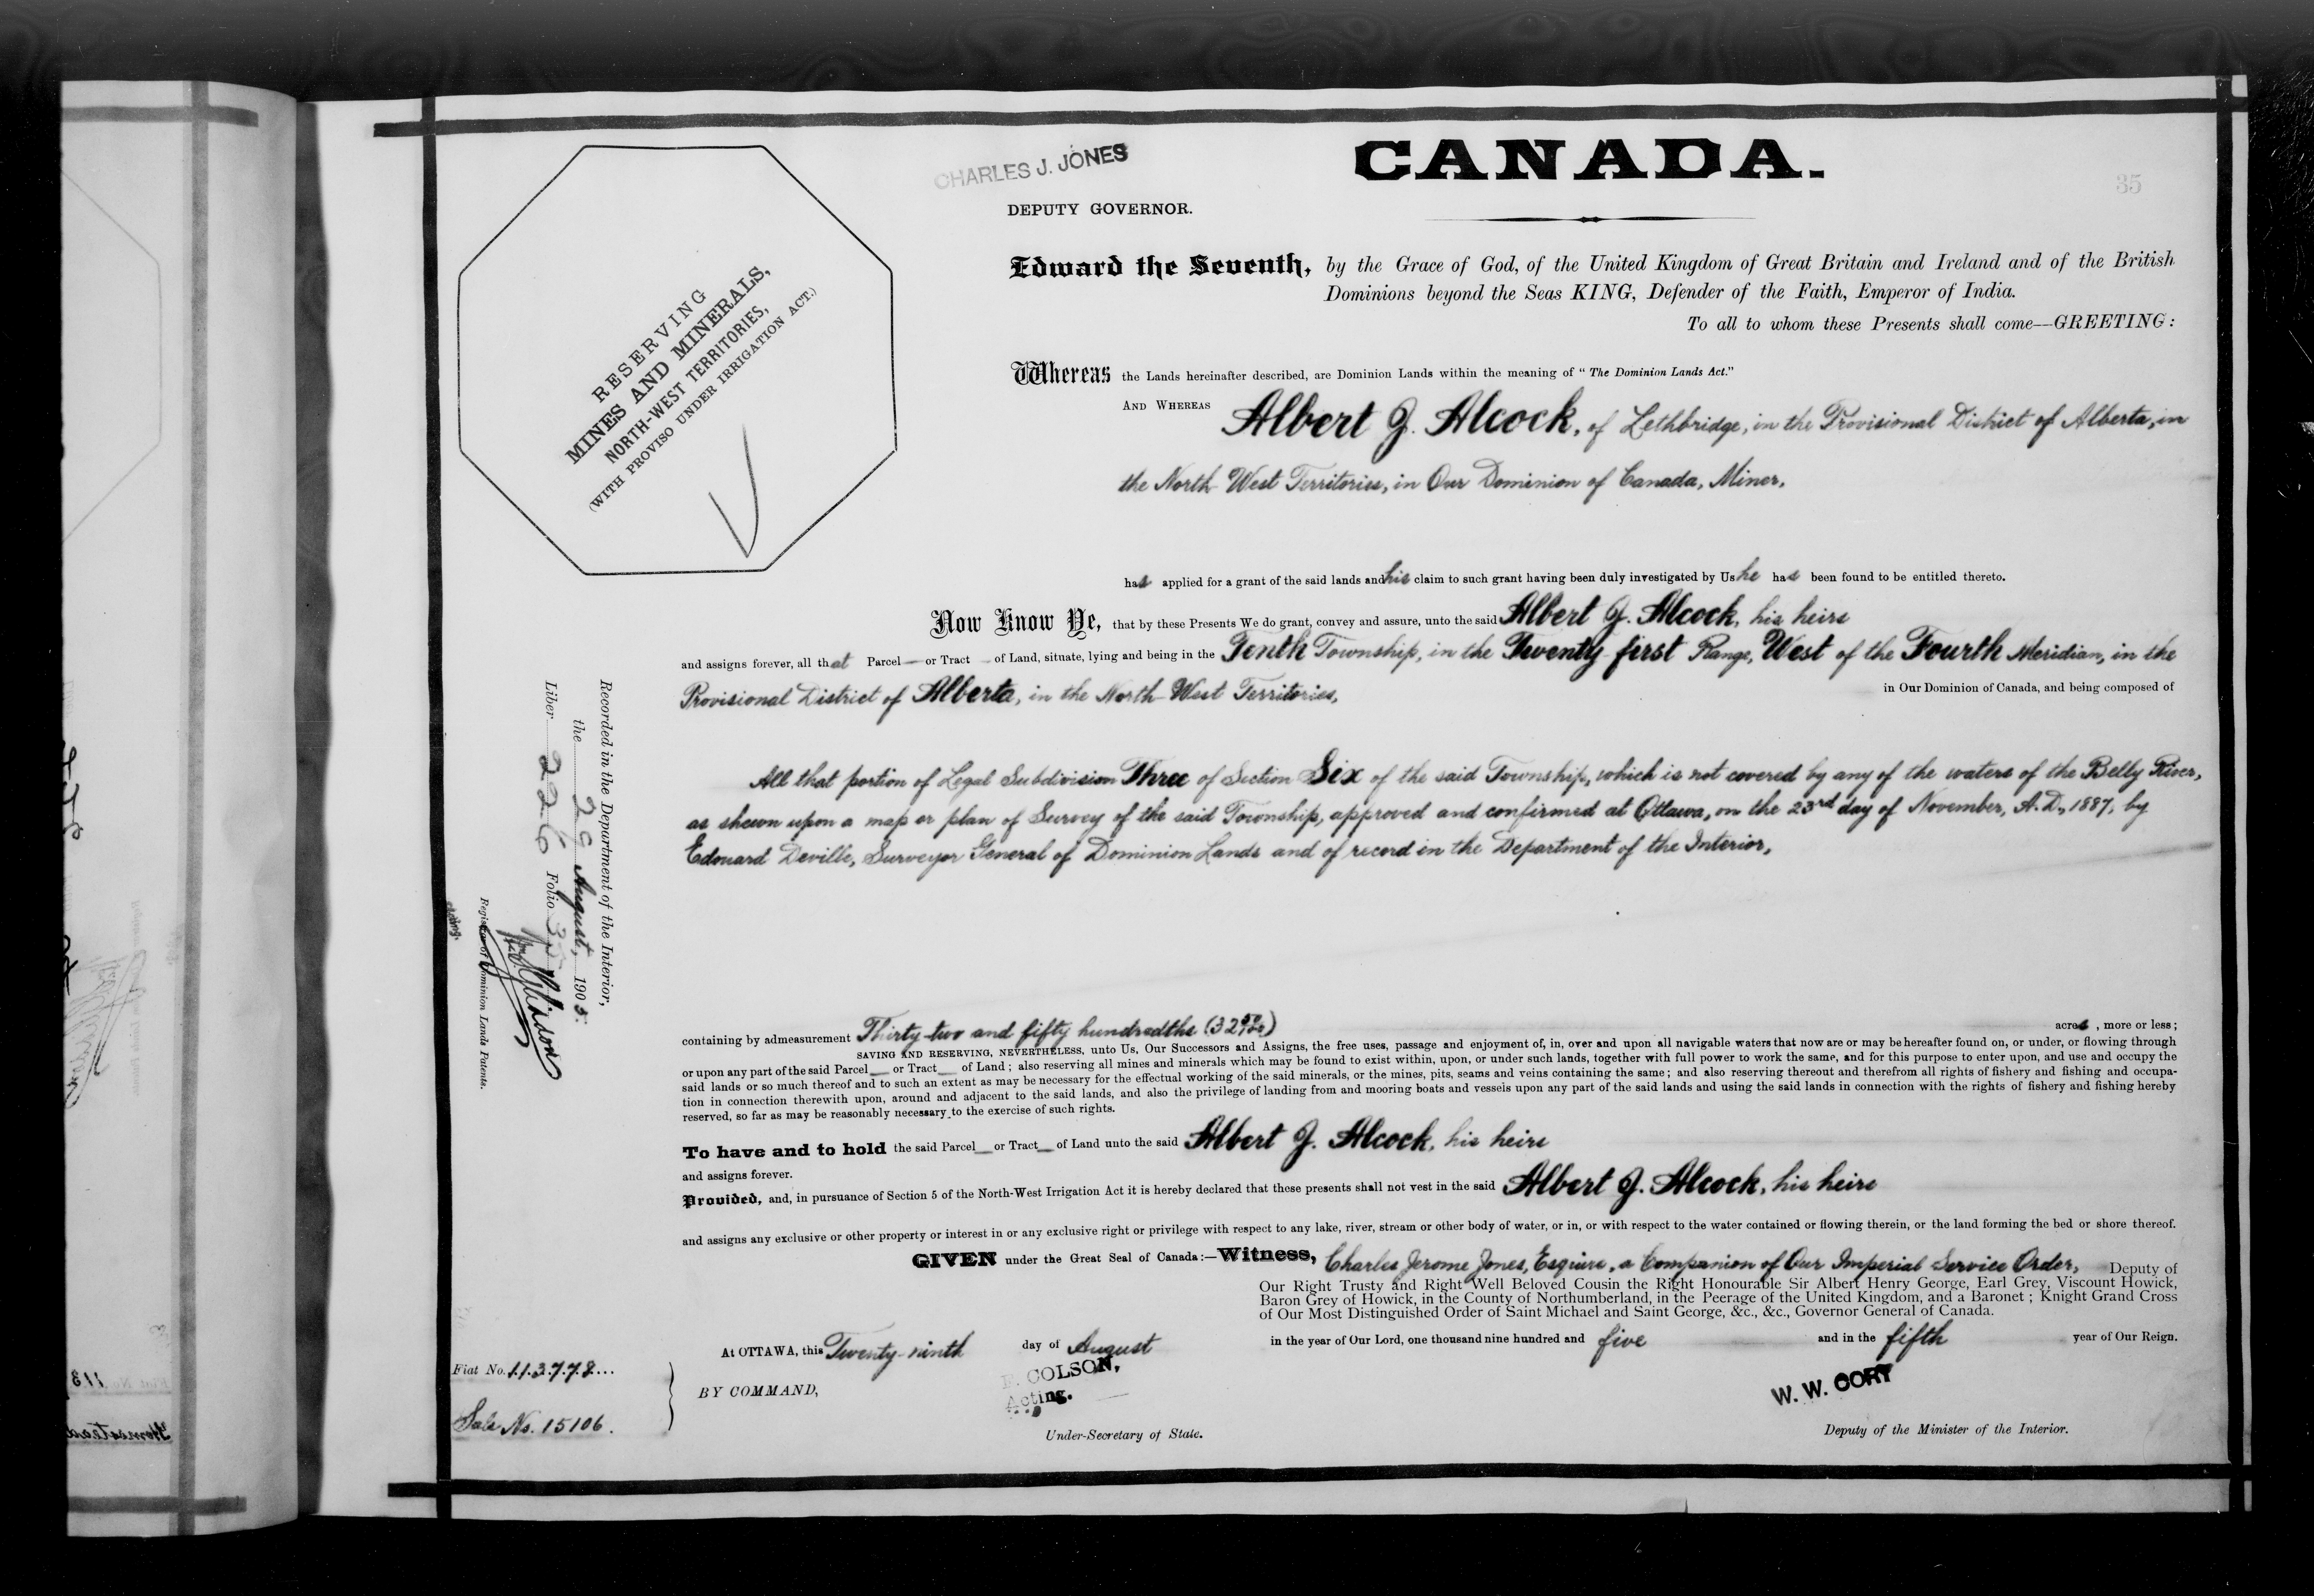 CHARLES J. JONES
DEPUTY GOVERNOR.
CANADA.
35
RESERVING
MINES AND MINERALS,
NORTH-WEST TERRITORIES,
(WITH PROVISO UNDER IRRIGATION ACT.)
Edward the Seventh, by the Grace of God, of the United Kingdom of Great Britain and Ireland and of the British
Dominions beyond the Seas KING, Defender of the Faith, Emperor of India.
To all to whom these Presents shall come—GREETING:
Whereas the Lands hereinafter described, are Dominion Lands within the meaning of "The Dominion Lands Act."
AND WHEREAS Albert J. Alcock, of Lethbridge, in the Provisional District of Alberta, in
the North West Territories, in Our Dominion of Canada, Miner,
has applied for a grant of the said lands and his claim to such grant having been duly investigated by Us he has been found to be entitled thereto.
Now Know Ye, that by these Presents We do grant, convey and assure, unto the said Albert J. Alcock, his heirs
and assigns forever, all that Parcel — or Tract — of Land, situate, lying and being in the Tenth Township, in the Twenty-first Range, West of the Fourth Meridian, in the
Provisional District of Alberta, in the North-West Territories, in Our Dominion of Canada, and being composed of
All that portion of Legal Subdivision Three of Section Six of the said Township, which is not covered by any of the waters of the Belly River,
as shewn upon a map or plan of Survey of the said Township, approved and confirmed at Ottawa, on the 23rd day of November, A.D., 1887, by
Edouard Deville, Surveyor General of Dominion Lands and of record in the Department of the Interior,
Recorded in the Department of the Interior,
the 29 August, 1905.
Liber 226 Folio 35
Register of Dominion Lands Patents.
containing by admeasurement Thirty-two and fifty hundredths (32 50/100) acres, more or less;
SAVING AND RESERVING, NEVERTHELESS, unto Us, Our Successors and Assigns, the free uses, passage and enjoyment of, in, over and upon all navigable waters that now are or may be hereafter found on, or under, or flowing through
or upon any part of the said Parcel__ or Tract__ of Land; also reserving all mines and minerals which may be found to exist within, upon, or under such lands, together with full power to work the same, and for this purpose to enter upon, and use and occupy the
said lands or so much thereof and to such an extent as may be necessary for the effectual working of the said minerals, or the mines, pits, seams and veins containing the same; and also reserving thereout and therefrom all rights of fishery and fishing and occupa-
tion in connection therewith upon, around and adjacent to the said lands, and also the privilege of landing from and mooring boats and vessels upon any part of the said lands and using the said lands in connection with the rights of fishery and fishing hereby
reserved, so far as may be reasonably necessary to the exercise of such rights.
To have and to hold the said Parcel__ or Tract__ of Land unto the said Albert J. Alcock, his heirs
and assigns forever.
Provided, and, in pursuance of Section 5 of the North-West Irrigation Act it is hereby declared that these presents shall not vest in the said Albert J. Alcock, his heirs
and assigns any exclusive or other property or interest in or any exclusive right or privilege with respect to any lake, river, stream or other body of water, or in, or with respect to the water contained or flowing therein, or the land forming the bed or shore thereof.
GIVEN under the Great Seal of Canada:—Witness, Charles Jerome Jones, Esquire, a Companion of Our Imperial Service Order, Deputy of
Our Right Trusty and Right Well Beloved Cousin the Right Honourable Sir Albert Henry George, Earl Grey, Viscount Howick,
Baron Grey of Howick, in the County of Northumberland, in the Peerage of the United Kingdom, and a Baronet; Knight Grand Cross
of Our Most Distinguished Order of Saint Michael and Saint George, &c., &c., Governor General of Canada.
At OTTAWA, this Twenty-ninth day of August in the year of Our Lord, one thousand nine hundred and five and in the fifth year of Our Reign.
Fiat No. 113778
Sale No. 15106.
BY COMMAND,
COLSON,
Acting.
Under-Secretary of State.
W. W. CORY
Deputy of the Minister of the Interior.